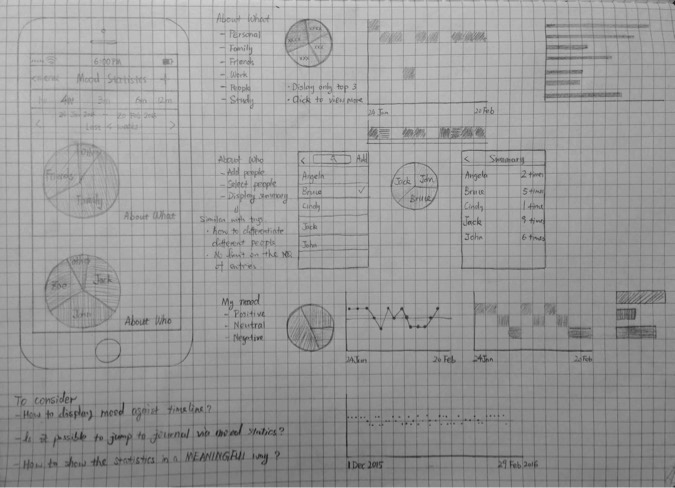 6:00PM
Mood Statistics
Last 4 weeks
Friends
Family
About What
Jack
John
About Who
About What
- Personal
- Family
- Friends
- Work
- People
- Study
xxxx
xxx
xxx
xxx
• Display only top 3
• Click to view more
24 Jan
20 Feb
About Who
- Add people
- Select people
- Display summary
Similar with tags
• how to differentiate
different people
• No limit on the no.
of entries
< Add
Angela
Bruce ✓
Cindy
Jack
John
Jack
John
Bruce
< Summary
Angela 2 times
Bruce 5 times
Cindy 1 time
Jack 8 times
John 6 times
My mood
- Positive
- Neutral
- Negative
24 Jan
20 Feb
24 Jan
20 Feb
To consider
- How to display mood against timeline?
- Is it possible to jump to journal via mood statics?
- How to show the statistics in a MEANINGFUL way?
1 Dec 2015
29 Feb 2016